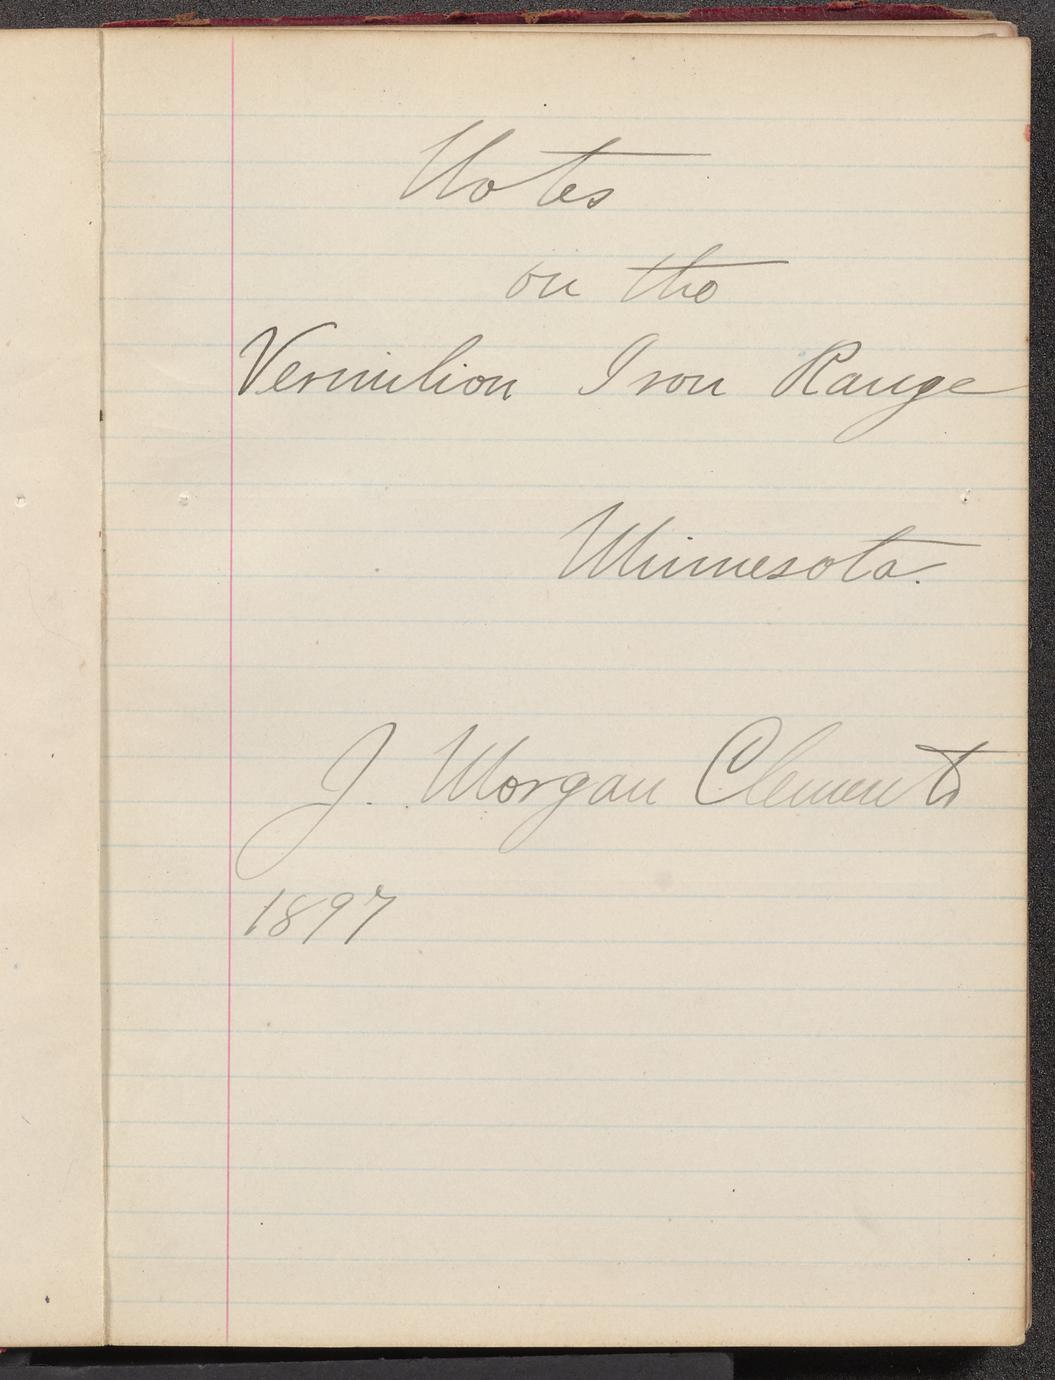 Notes
on the
Vermilion Iron Range
Minnesota.
J. Morgan Clements
1897